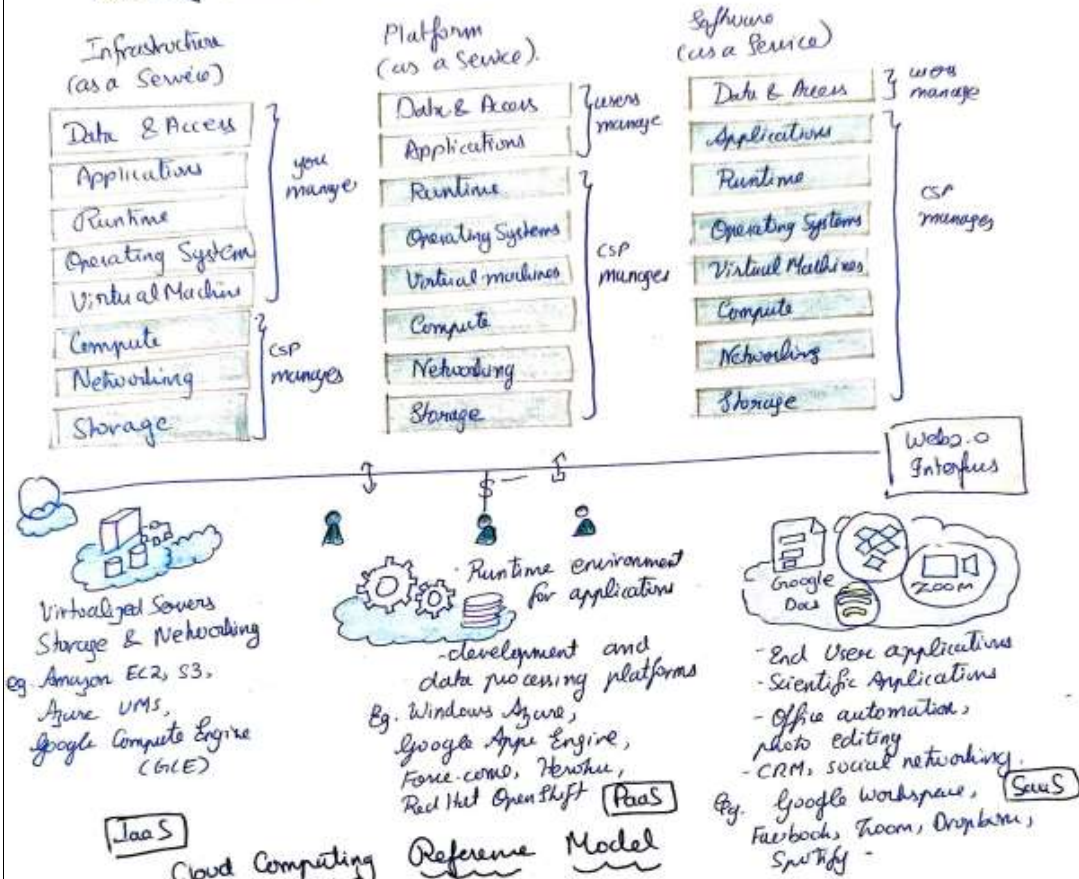 Infrastructure
(as a Service)
Data & Access
Applications
Runtime
Operating System
Virtual Machine
Compute
Networking
Storage
you
manage
CSP
manages
Platform
(as a Service).
Data & Access
Applications
Runtime
Operating Systems
Virtual machines
Compute
Networking
Storage
users
manage
CSP
manages
Software
(as a Service)
Data & Access
Applications
Runtime
Operating Systems
Virtual Machines
Compute
Networking
Storage
users
manage
CSP
manages
Web2.0
$
Virtualized Servers
Storage & Networking
eg. Amazon EC2, S3,
Azure VMS,
Google Compute Engine
(GCE)
IaaS
- Runtime environment
for applications
- development and
data processing platforms
Eg. Windows Azure,
Google Apps Engine,
Heroku,
Red Hat OpenShift
PaaS
Google
Docs
ZOOM
- End User applications
- Scientific Applications
- Office automation,
photo editing
- CRM, social networking.
Eg. Google Workspace,
Facebook, Zoom,
Spotify -
SaaS
Cloud Computing Reference Model